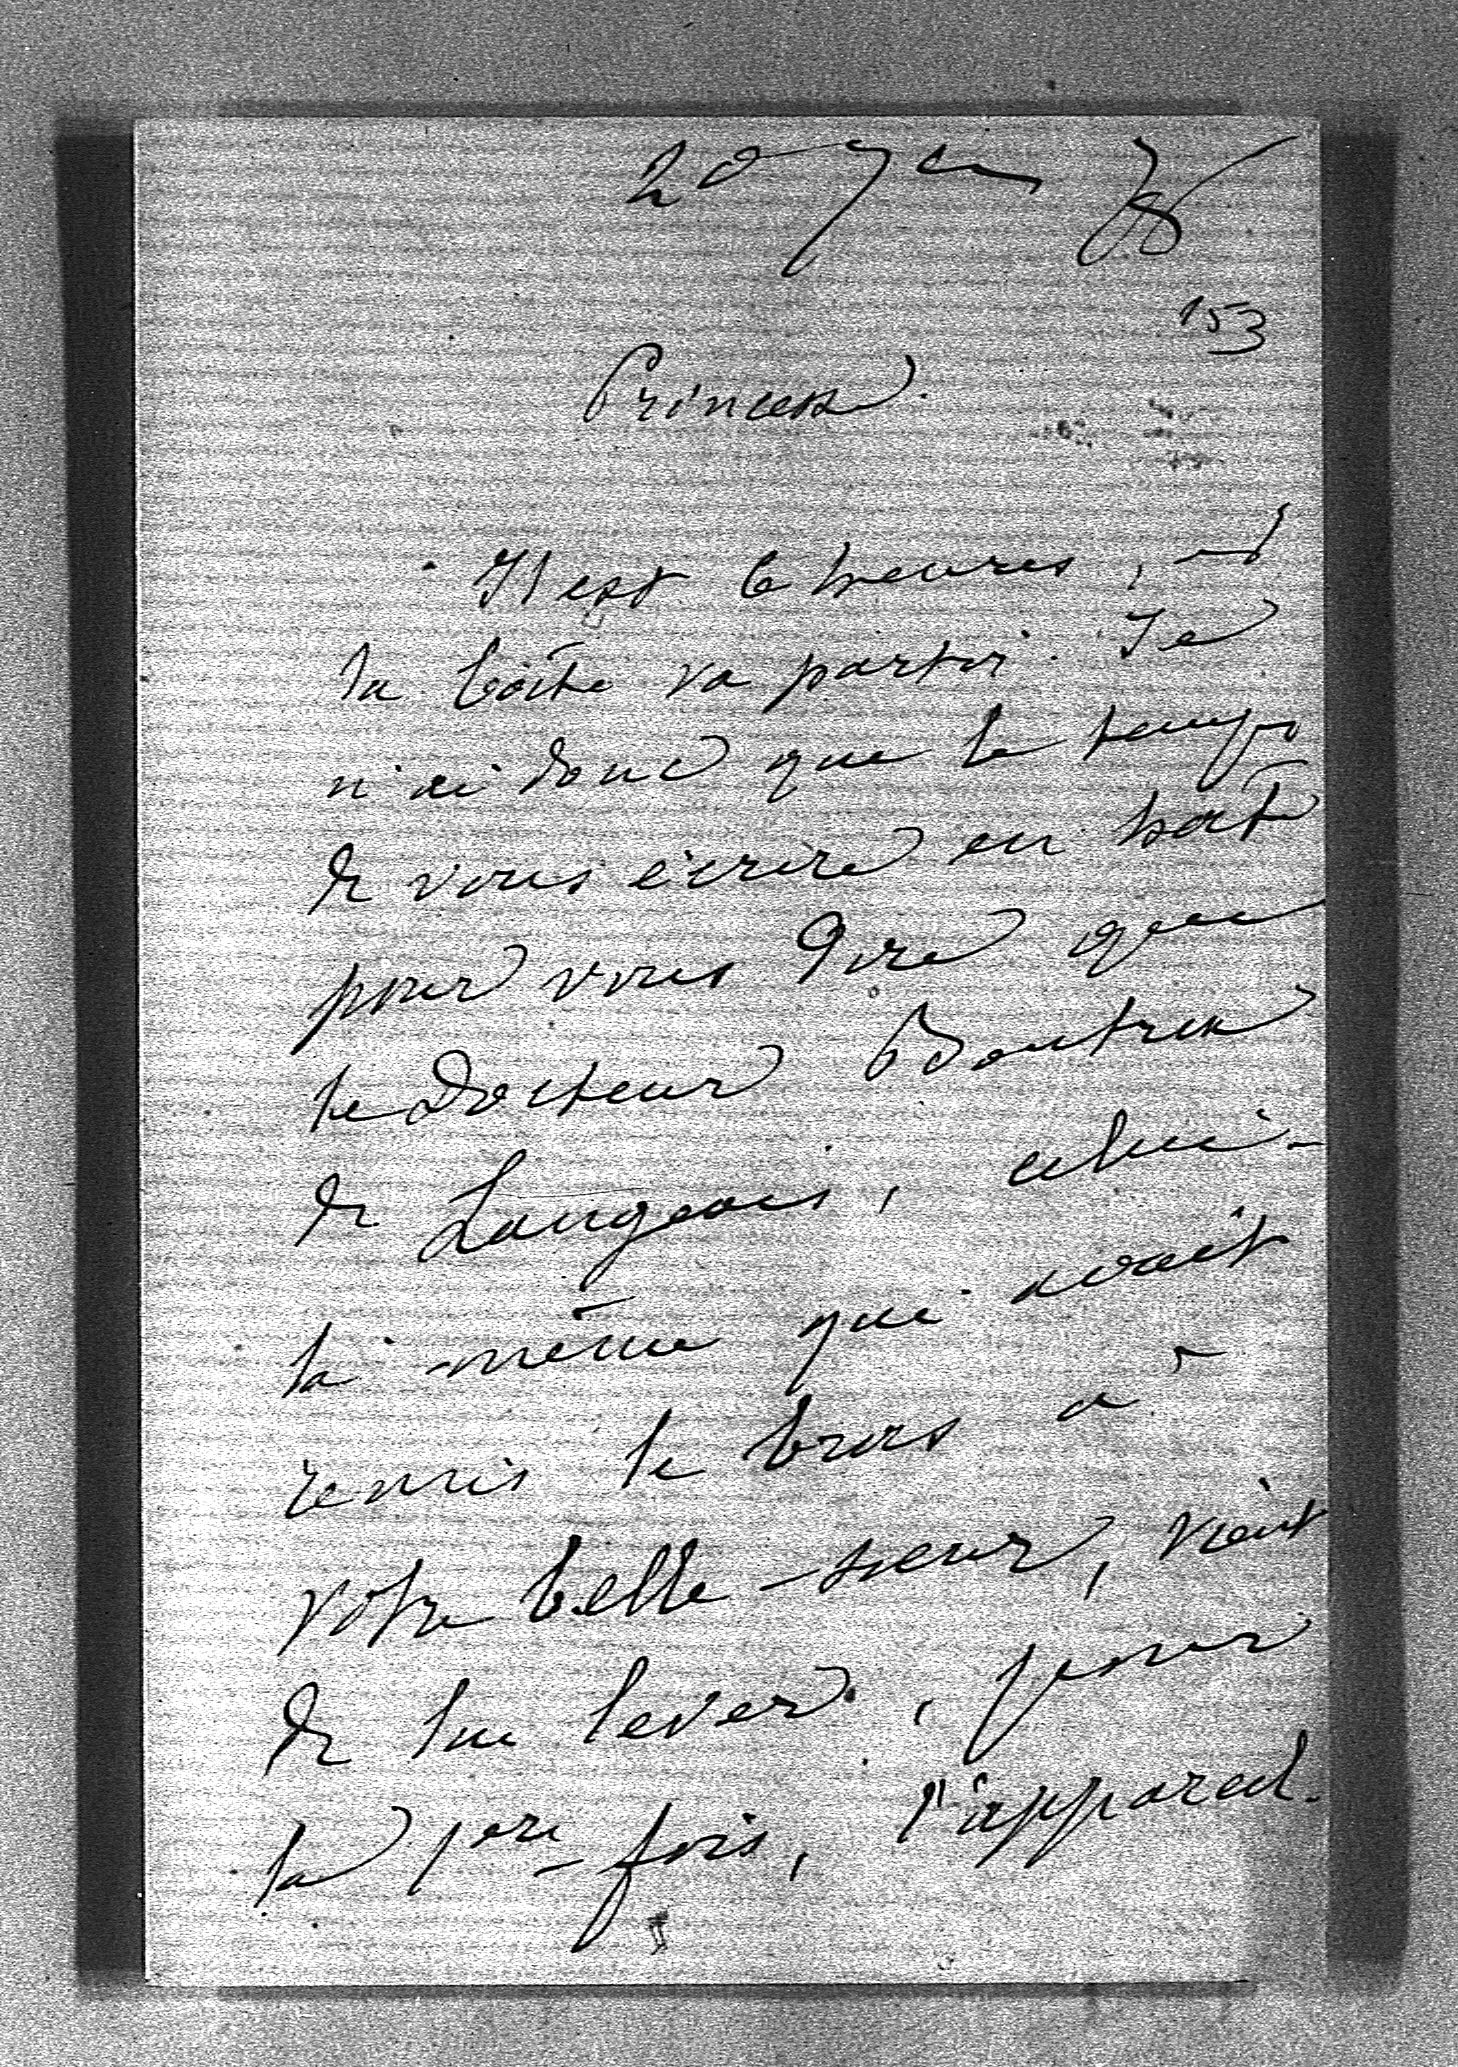 20 7bre 78
153
Princesse.
Il est 6 heures, et
la boîte va partir. Je
n'ai donc que le temps
de vous écrire en hâte
pour vous dire que
le Docteur Boutrex
de Langeais, celui-
là même qui avait
remis le bras à
votre belle-soeur, vient
de lui lever, pour
la 1ere fois, l'appareil.